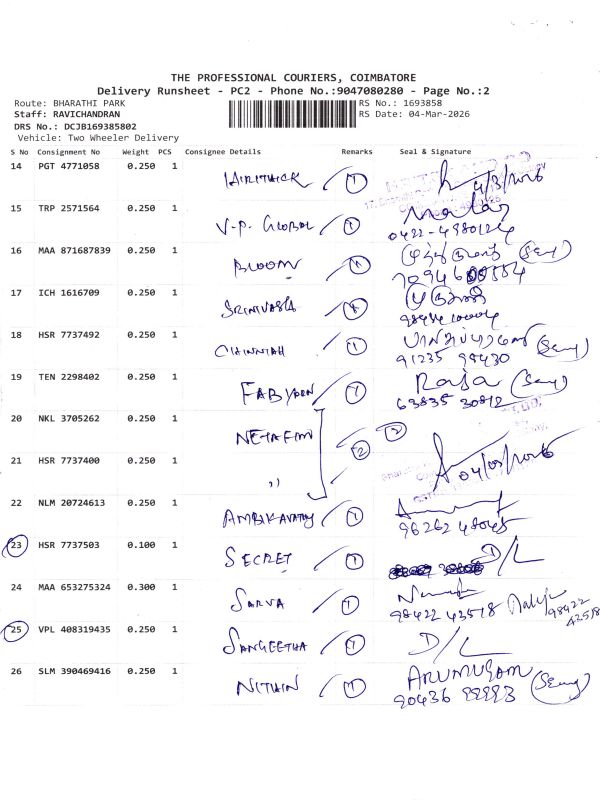 THE PROFESSIONAL COURIERS, COIMBATORE
Delivery Runsheet - PC2 - Phone No.:9047080280 - Page No.:2
Route: BHARATHI PARK RS No.: 1693858
Staff: RAVICHANDRAN RS Date: 04-Mar-2026
DRS No.: DCJB169385802
Vehicle: Two Wheeler Delivery
S No Consignment No Weight PCS Consignee Details Remarks Seal & Signature
14 PGT 4771058 0.250 1 HIRITHICK 1 4/3/2026
15 TRP 2571564 0.250 1 V.P. GLOBAL 1
0422-4980124
16 MAA 871687839 0.250 1 BLOOM
17 ICH 1616709 0.250 1 SRINIVASA
18 HSR 7737492 0.250 1 CHINNIAH 1
91235 98430
19 TEN 2298402 0.250 1 1 Raja
63835 30812
20 NKL 3705262 0.250 1 NETAFIM 2
21 HSR 7737400 0.250 1 " 2 04/03/2026
22 NLM 20724613 0.250 1 AMBIKAVATHY 1
96262 48045
23 HSR 7737503 0.100 1 SECRET 1 D/L
24 MAA 653275324 0.300 1 SARVA 1
98422 43518 98422
25 VPL 408319435 0.250 1 SANGEETHA 1 D/L
26 SLM 390469416 0.250 1 NITHIN 1 ARUMUGAM
90436 99993